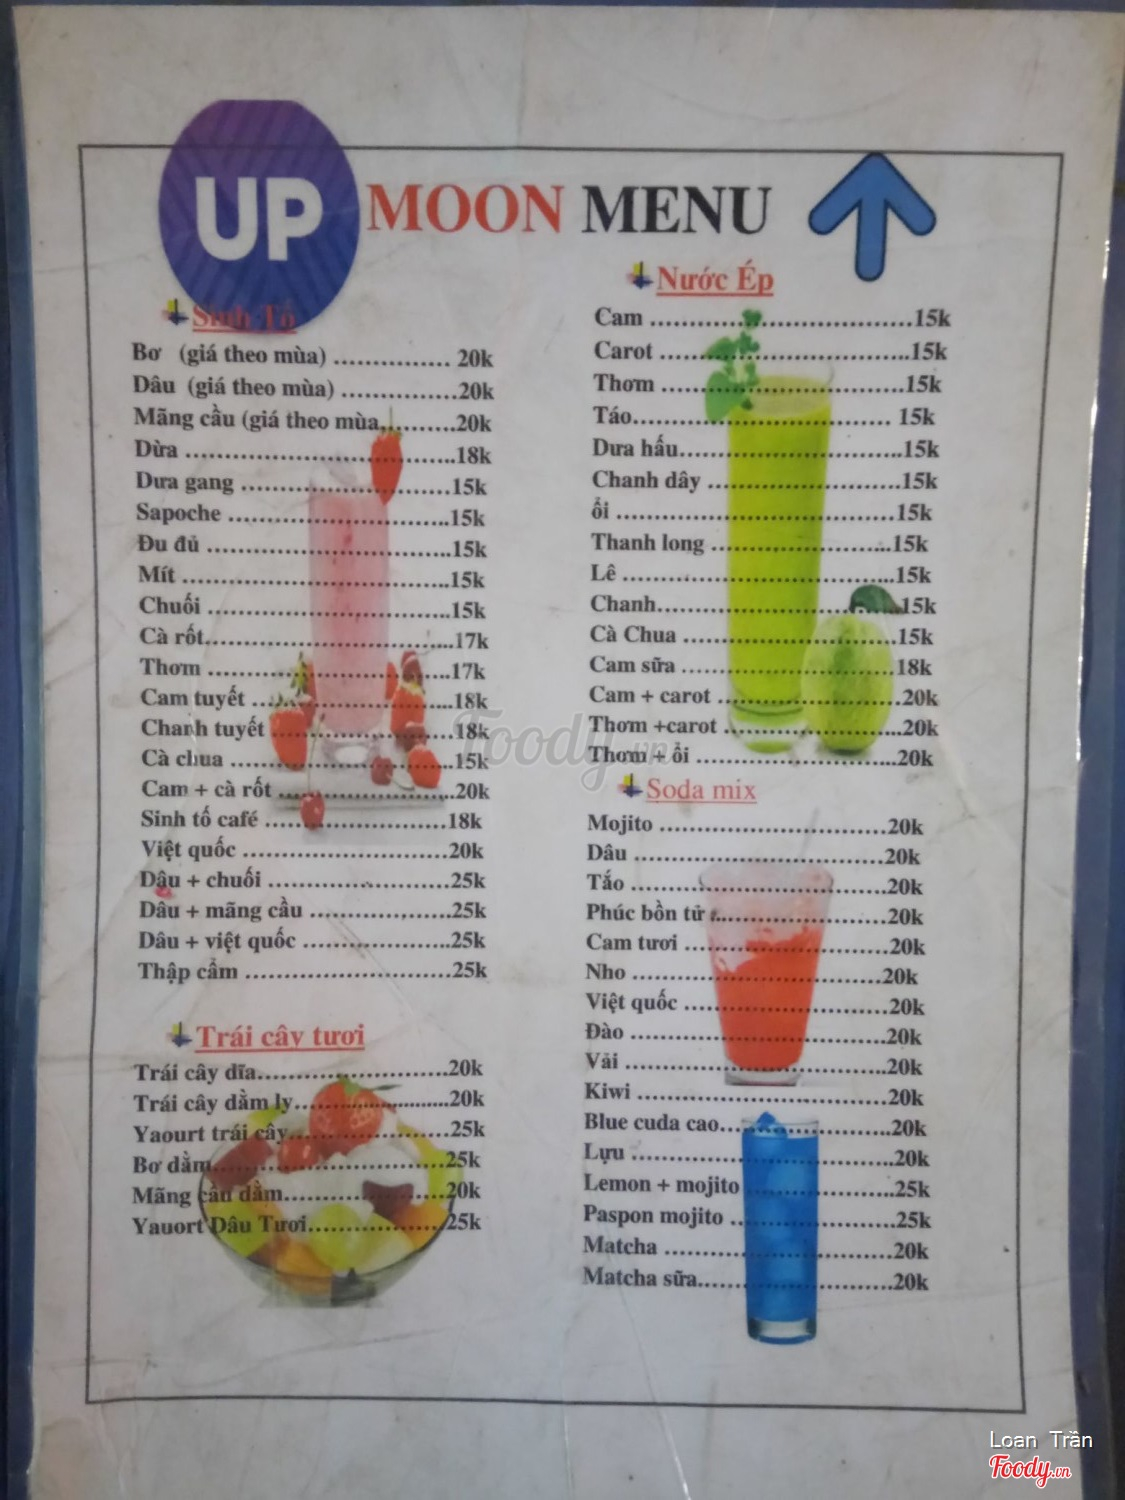 UP MOON MENU
Sinh Tố
Bơ (giá theo mùa) ................ 20k
Dâu (giá theo mùa) ................20k
Mãng cầu (giá theo mùa..........20k
Dừa ......................................18k
Dưa gang ..............................15k
Sapoche ................................15k
Đu đủ ...................................15k
Mít .......................................15k
Chuối ...................................15k
Cà rốt....................................17k
Thơm ...................................17k
Cam tuyết .............................18k
Chanh tuyết ..........................18k
Cà chua ................................15k
Cam + cà rốt .........................20k
Sinh tố café ..........................18k
Việt quốc .............................20k
Dâu + chuối ..........................25k
Dâu + mãng cầu ....................25k
Dâu + việt quốc .....................25k
Thập cẩm .............................25k
Trái cây tươi
Trái cây dĩa...........................20k
Trái cây dằm ly......................20k
Yaourt trái cây.......................25k
Bơ dằm.................................25k
Mãng cầu dằm.......................20k
Yauort Dâu Tươi....................25k
Nước Ép
Cam .....................................15k
Carot ....................................15k
Thơm ...................................15k
Táo..................................... 15k
Dưa hấu................................15k
Chanh dây ............................15k
ổi ........................................15k
Thanh long ...........................15k
Lê ........................................15k
Chanh...................................15k
Cà Chua ...............................15k
Cam sữa ...............................18k
Cam + carot ..........................20k
Thơm +carot .........................20k
Thơm + ổi ............................20k
Soda mix
Mojito ..................................20k
Dâu ......................................20k
Tắo .......................................20k
Phúc bồn tử ..........................20k
Cam tươi ..............................20k
Nho ......................................20k
Việt quốc .............................20k
Đào ......................................20k
Vải .......................................20k
Kiwi .....................................20k
Blue cuda cao........................20k
Lựu ......................................20k
Lemon + mojito .....................25k
Paspon mojito .......................25k
Matcha .................................20k
Matcha sữa............................20k
Foody.vn
Loan Trần
Foody.vn